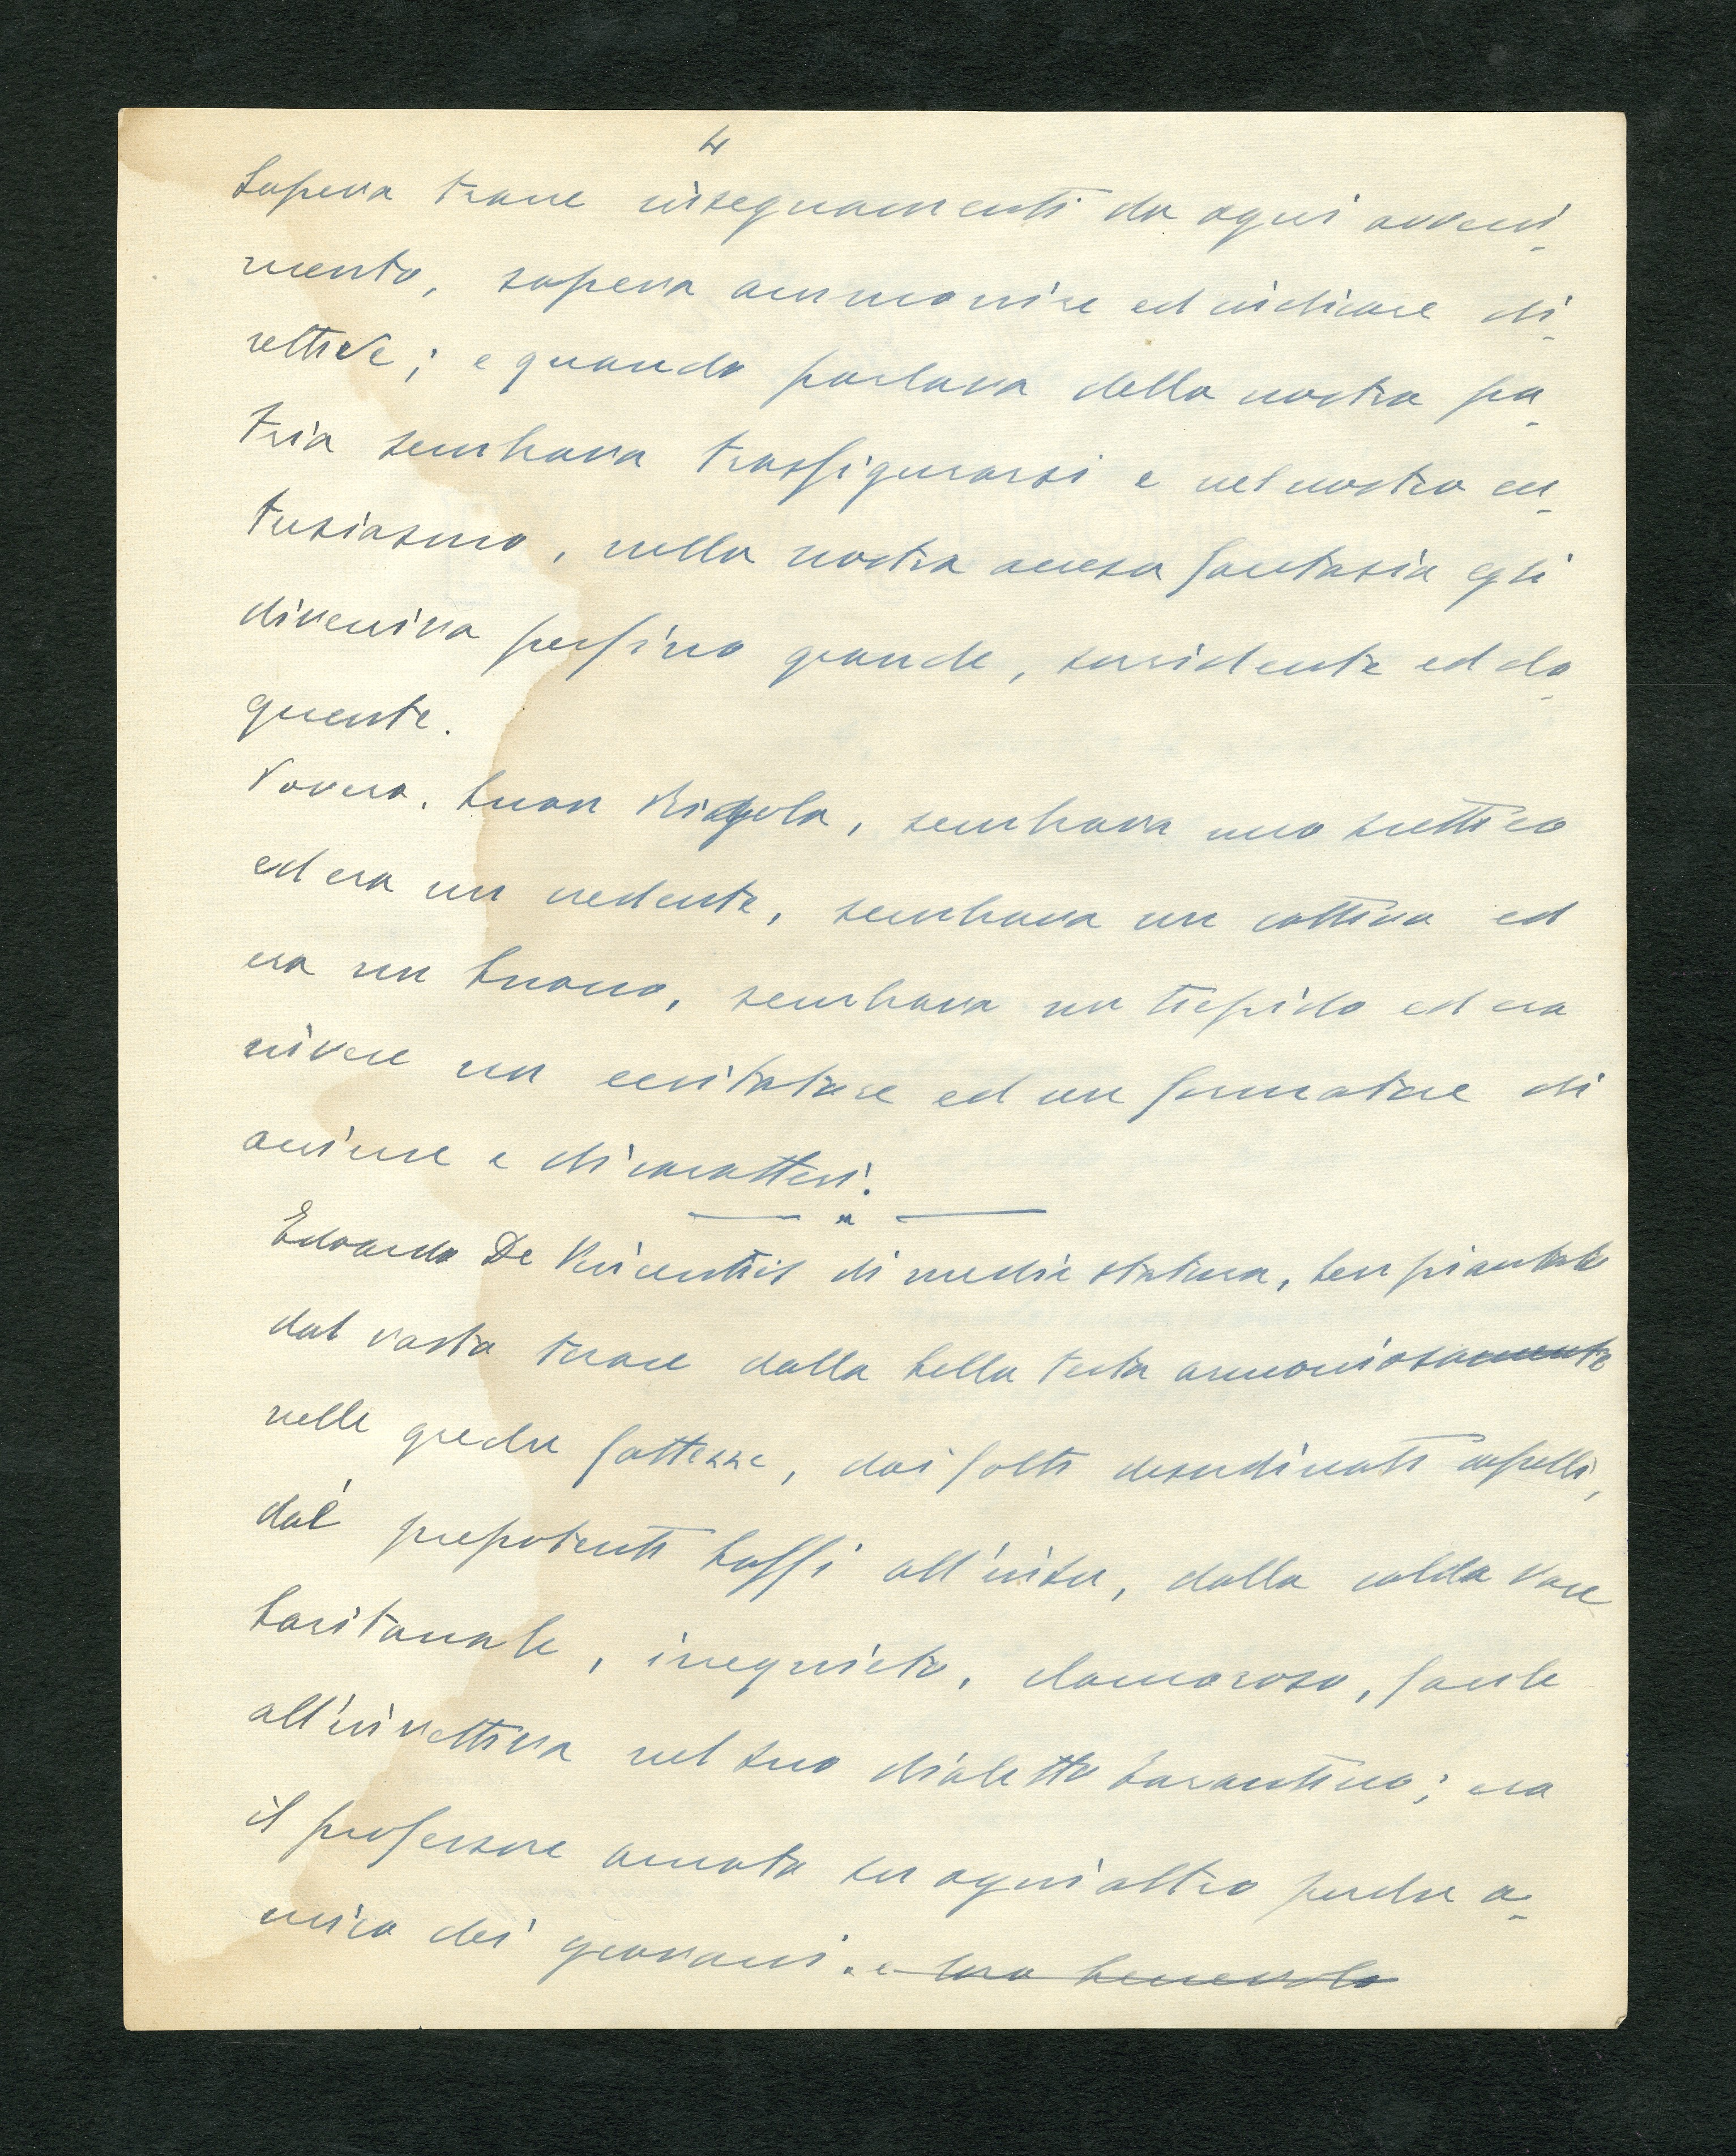 4
Sapeva trarre insegnamenti da ogni avveni-
mento, sapeva ammonire ed indicare di-
rettive; e quando parlava della nostra pa-
tria sembrava trasfigurarsi e nel nostro en-
tusiasmo, nella nostra accesa fantasia egli
diveniva perfino grande, sorridente ed elo-
quente.
Povero, buon, sembrava uno scettico
ed era un credente, sembrava un cattivo ed
era un buono, sembrava un tiepido ed era
invece un eccitatore ed un formatore di
anime e di caratteri.
Edoardo De Vincentiis di media statura, ben piantato
dal vasto torace dalla bella testa armoniosamente
nelle greche fattezze, dai folti disordinati capelli,
dai prepotenti baffi all'insu, dalla calda voce
baritonale, irrequieto, clamoroso, facile
all'invettiva nel suo dialetto tarantino; era
il professore amato su ogni altro perche a-
mico dei giovani. e loro benevolo